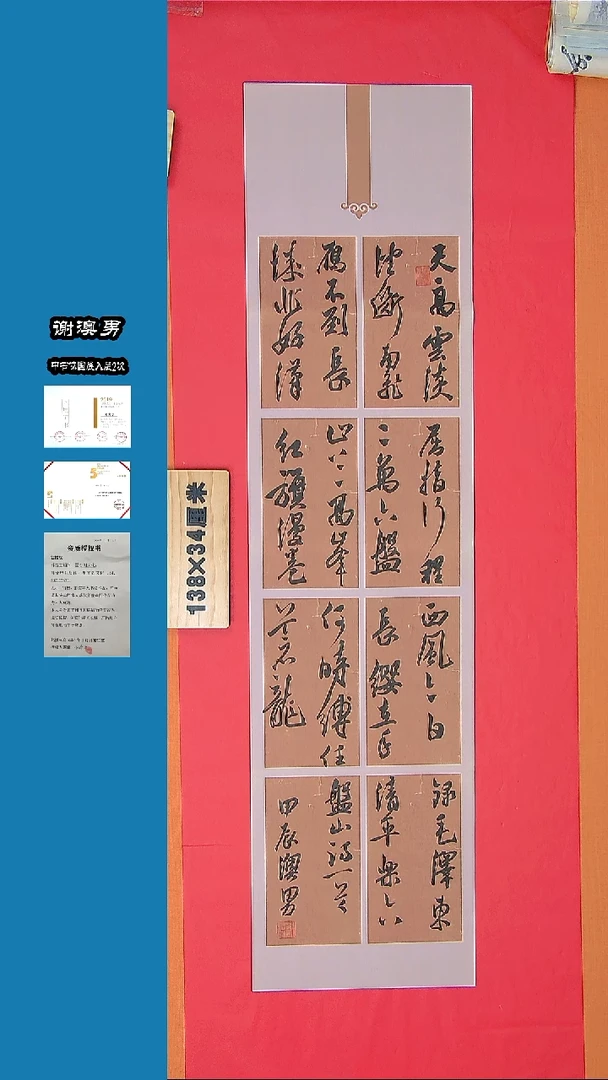 谢澳男
中书协国展入展2次
138×34厘米
天高雲淡
望斷南飛
鴈不到長
城非好漢
屈指行程
二萬六盤
山上高峰
紅旗漫卷
西風今日
長纓在手
何時縛住
蒼龍
錄毛澤東
清平樂六
盤山詞一首
甲辰澳男